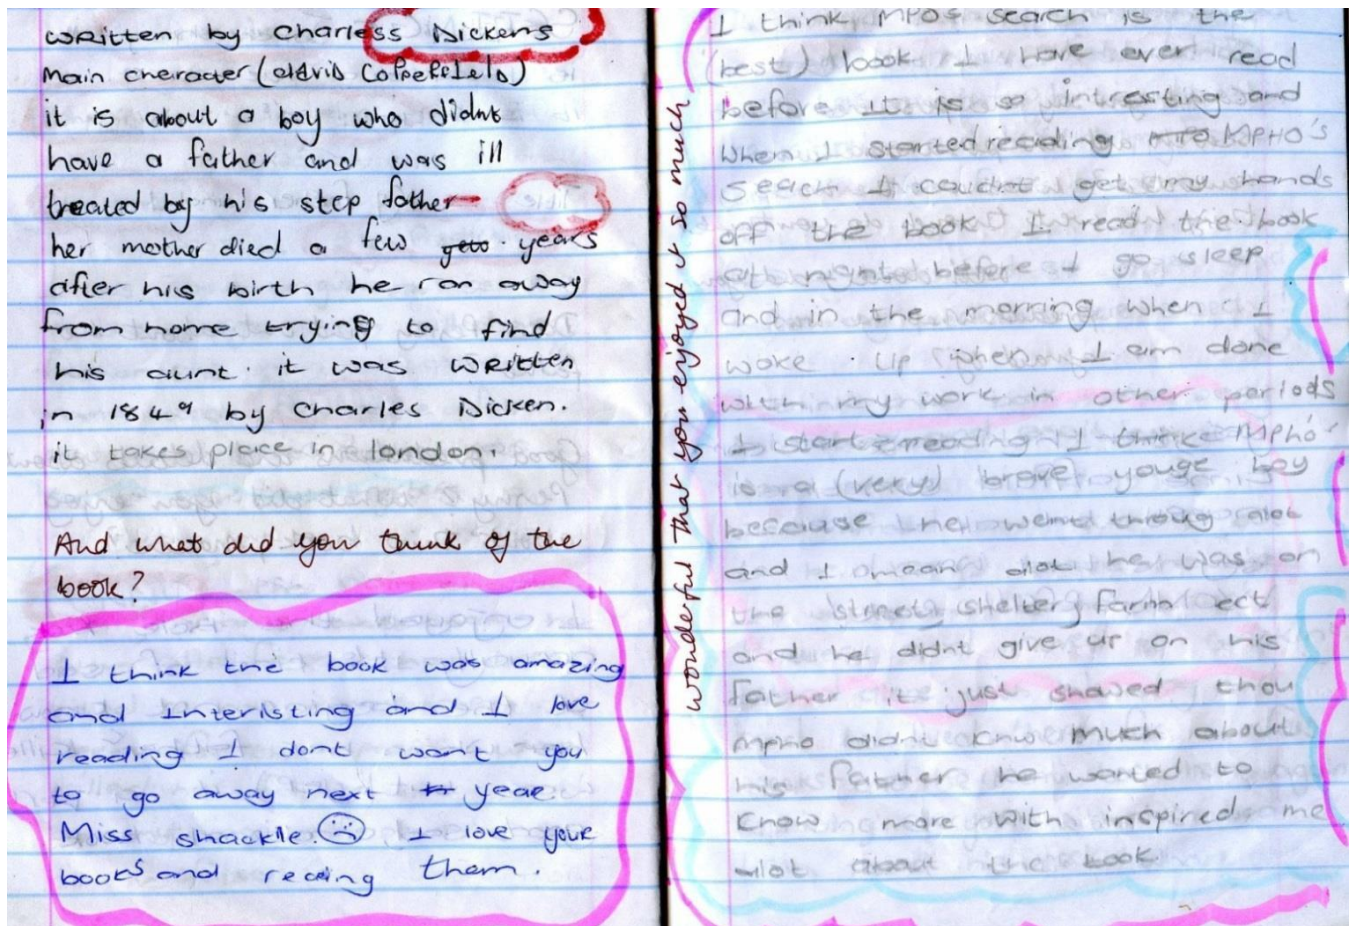 written by Charless Dickens
Main cheracter (david Copperfield)
it is about a boy who didnt
have a father and was ill
treated by his step father
her mother died a few years
after his birth he ran away
from home trying to find
his aunt. it was written
in 1849 by Charles Dicken.
it takes place in london.
And what did you think of the
book?
I think the book was amazing
and Interlsting and I love
reading I dont want you
to go away next year
Miss shackle. I love your
books and reading them.
wonderful that you enjoyed it so much
I think MPOS search is the
(best) book I have ever read
before It is so intresting and
when I started reading MPHO's
Seach I coudnt get my hands
off the book I read the book
at night before I go sleep
and in the morring when I
woke up when I am done
with my work in other periods
I start reading I think Mpho
is a (very) brave youge boy
because he went throug alot
and I mean alot he was on
the street, shelter, farm ect
and he didnt give up on his
father it just showed thou
Mpho didnt know much about
his father he wanted to
know more with inspired me
alot about the book.